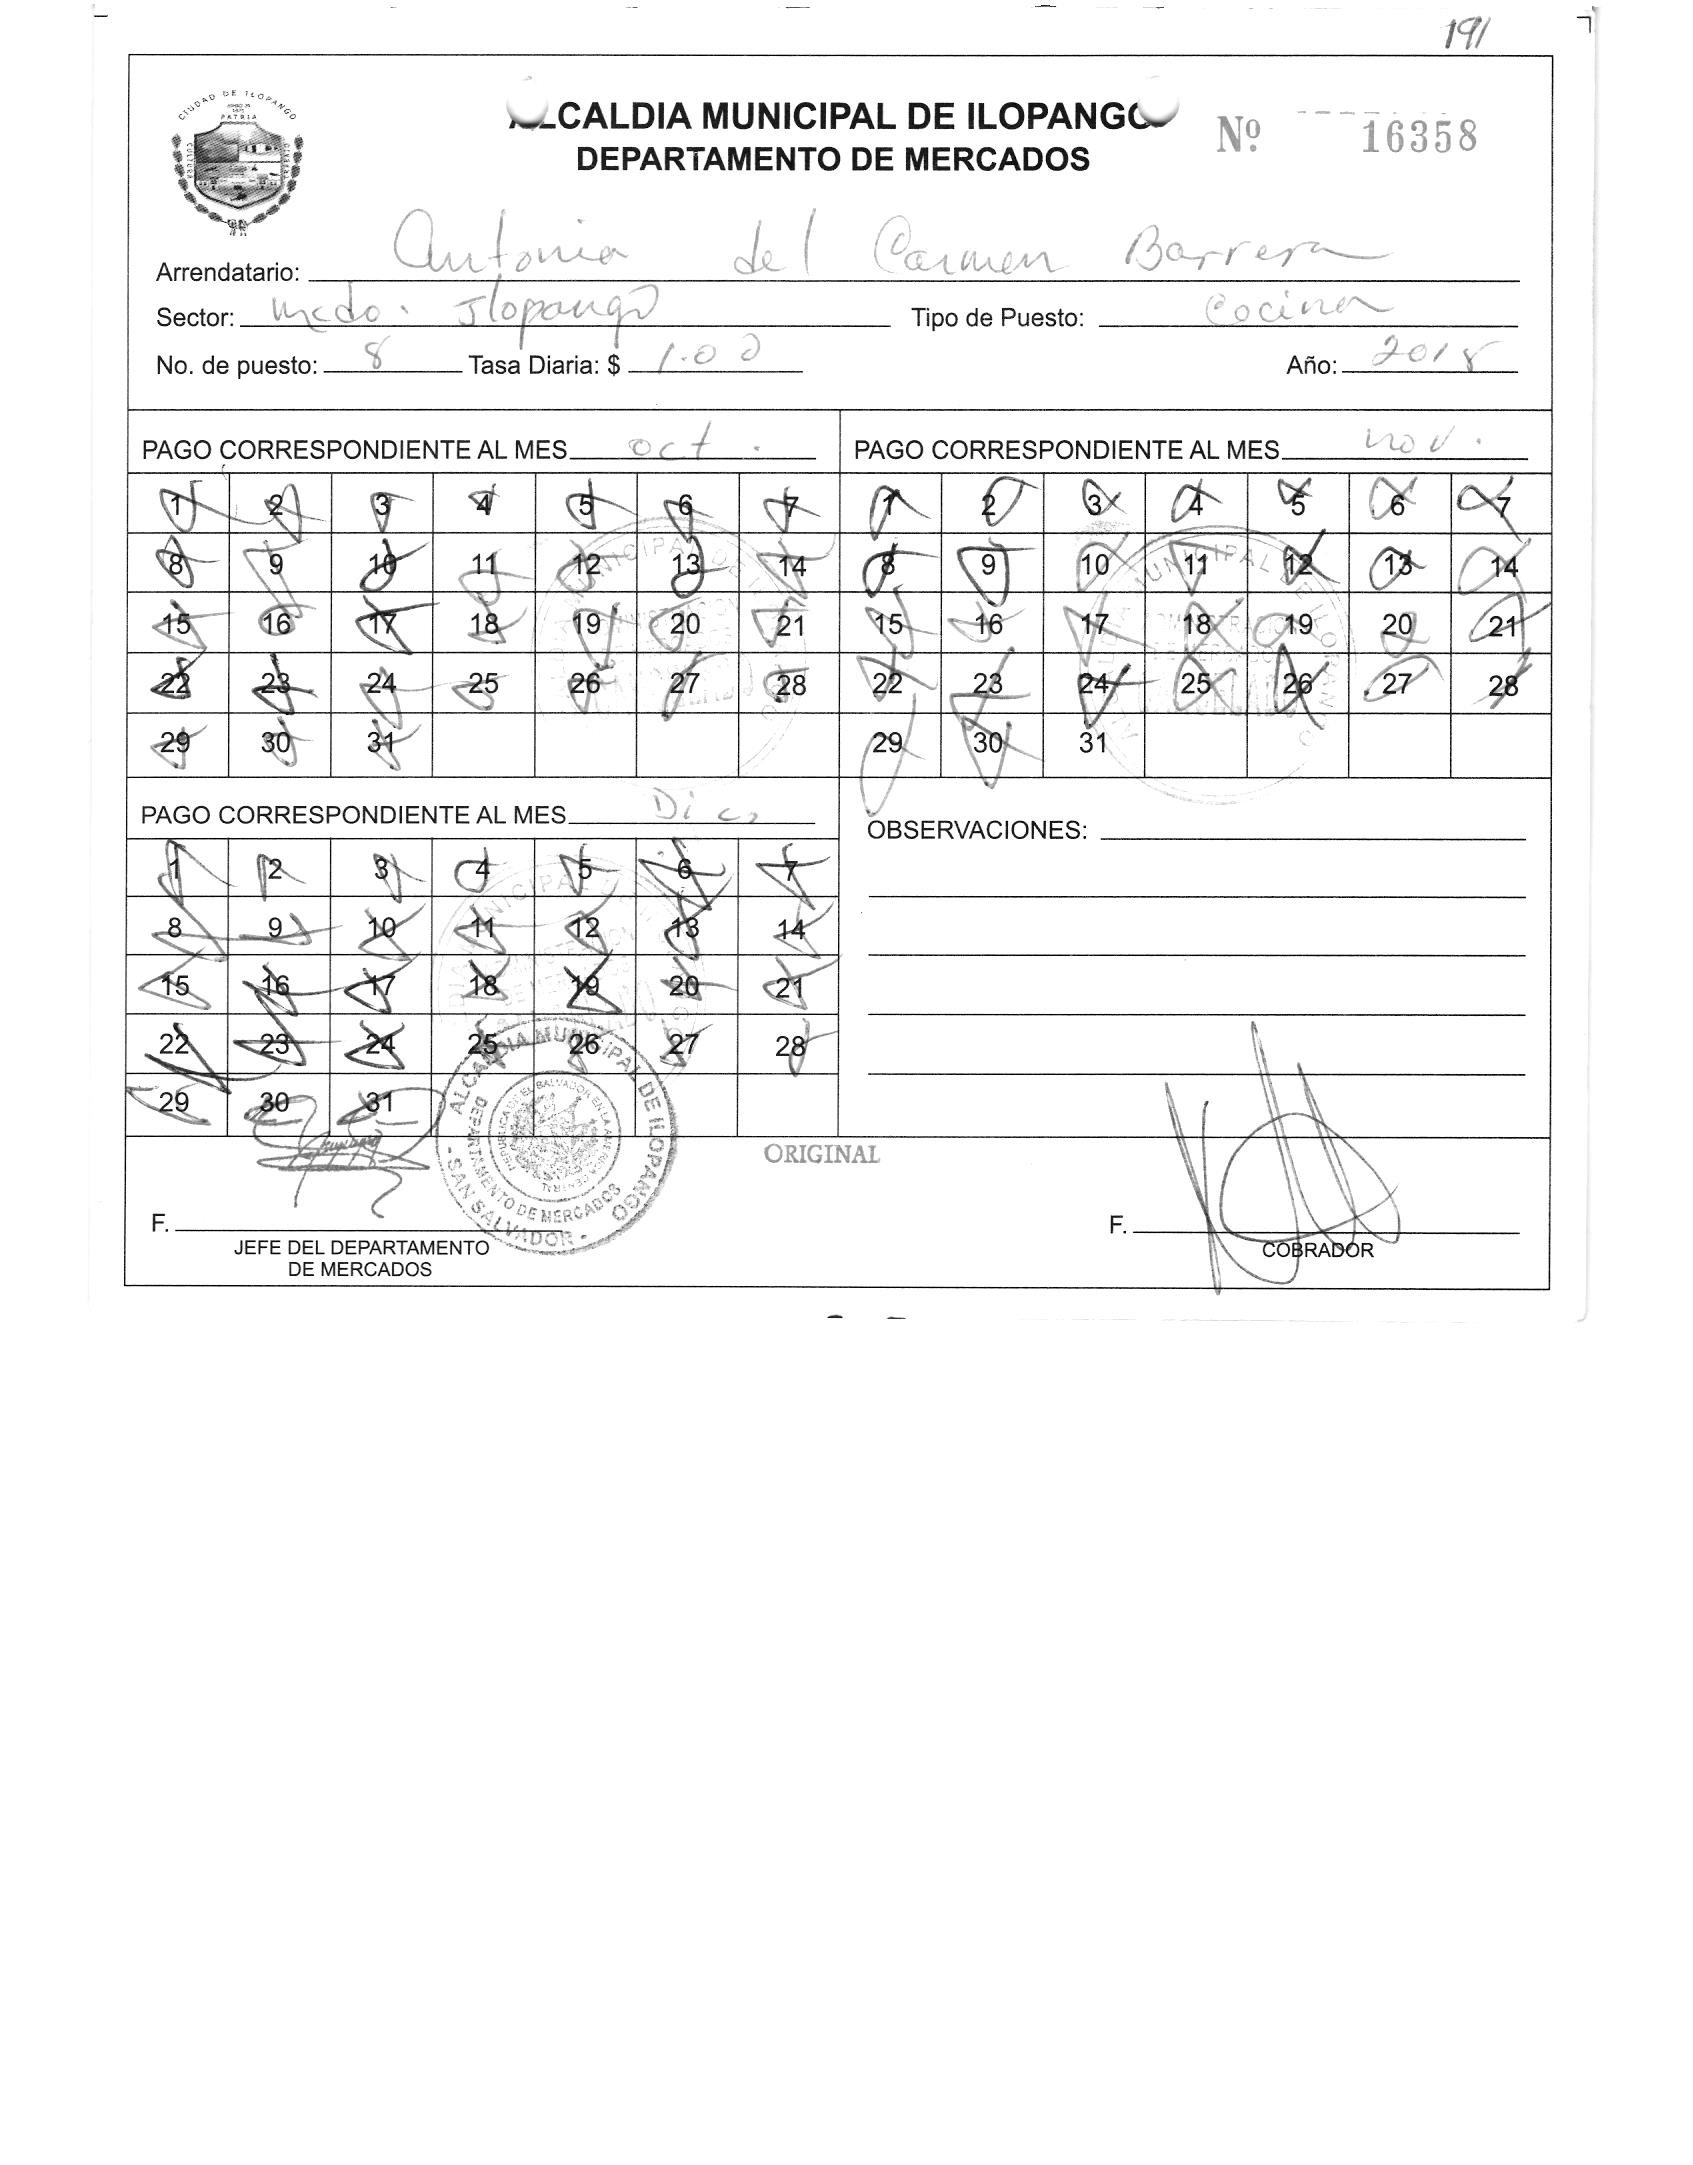 191
CIUDAD DE ILOPANGO
PATRIA
CULTURA
ALCALDIA MUNICIPAL DE ILOPANGO
Nº 16358
DEPARTAMENTO DE MERCADOS
Arrendatario: Antonia del Carmen Barrera
Sector: Mcdo. Ilopango Tipo de Puesto: Cocina
No. de puesto: 8 Tasa Diaria: $ 1.00 Año: 2018
PAGO CORRESPONDIENTE AL MES oct.
1 2 3 4 5 6 7
8 9 10 11 12 13 14
15 16 17 18 19 20 21
22 23 24 25 26 27 28
29 30 31
PAGO CORRESPONDIENTE AL MES nov.
1 2 3 4 5 6 7
8 9 10 11 12 13 14
15 16 17 18 19 20 21
22 23 24 25 26 27 28
29 30 31
PAGO CORRESPONDIENTE AL MES Dic,
1 2 3 4 5 6 7
8 9 10 11 12 13 14
15 16 17 18 19 20 21
22 23 24 25 26 27 28
29 30 31
OBSERVACIONES:
ALCALDIA MUNICIPAL DE ILOPANGO
DEPARTAMENTO DE MERCADOS
- SAN SALVADOR -
ORIGINAL
F.
JEFE DEL DEPARTAMENTO
DE MERCADOS
F.
COBRADOR